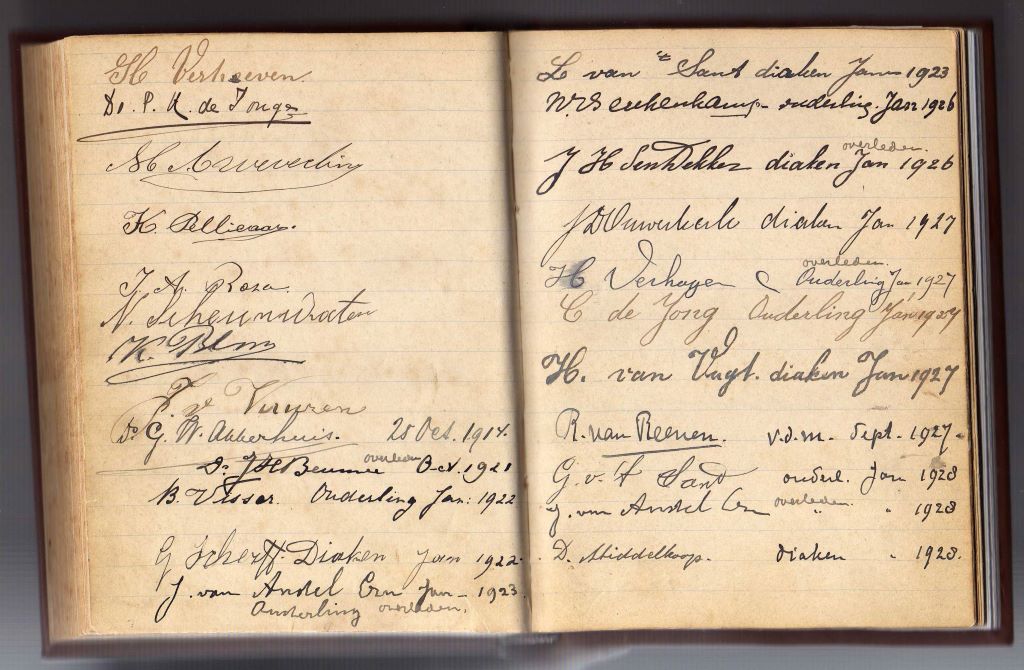 H Verhoeven.
Ds. P. K. de Jonge
K. Pellicaar.
J. A. Roza.
N. Scheurwater
K. Blom
Ds. G. W. Akkerhuis. 25 Oct. 1914.
overleden
Ds. J H Beumee Oct. 1921
B. Visser. Ouderling Jan: 1922
G Scherff. Diaken Jan 1922
J. van Andel Czn Jan - 1923
Ouderling overleden.
L van 't Sant diaken Jan 1923
ouderling. Jan 1926
overleden.
J H den Dekker diaken Jan 1926
J D Ouwerkerk diaken Jan 1927
overleden.
H Verhagen Ouderling Jan 1927
C de Jong Ouderling Jan 1927
H. van Vugt. diaken Jan 1927
R. van Reenen. v.d.m. Sept. 1927.
G. v. 't Sand ouderl. Jan 1928
J. van Andel Czn overleden " " 1928
D. Middelkoop. diaken " 1928.